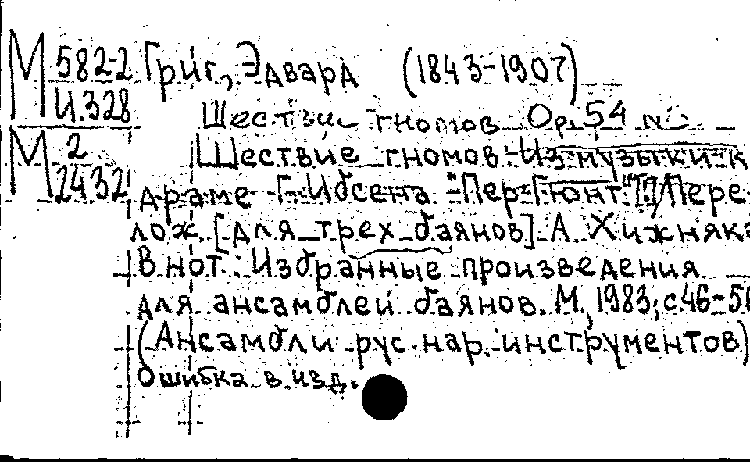 М 582-2 Григ, Эдвард (1843-1907)
И.328
Шествие гномов Op. 54 №
М 2 Шествие гномов Из музыки к
2432 драме Г. Ибсена "Пер Гюнт" Пере-
лож. [для трех баянов] А. Хижняка
В нот.: Избранные произведения
для ансамблей баянов. М., 1983, с. 46-
(Ансамбли рус. нар. инструментов)
Ошибка в изд.